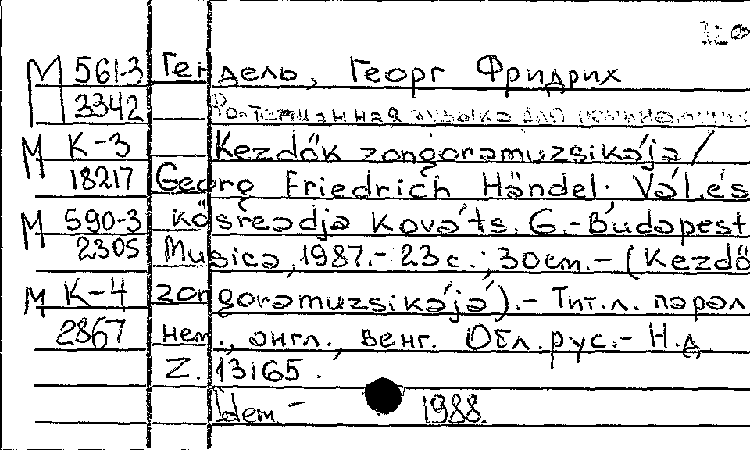 М 561-3 Гендель, Георг Фридрих
3342 музыка для
М К-3 Kezdők zongoramuzsikája /
18217 Georg Friedrich Händel. Vál. és
М 590-3 közreadja Kováts. G.-Budapest
2305 Musica, 1987.- 23 с.; 30 cm.- (Kezdő
М К-4 zongoramuzsikájá).- Тит.л. парал
2867 нем., англ., венг. Обл. рус.- Н.д
Z. 13165.
1988.